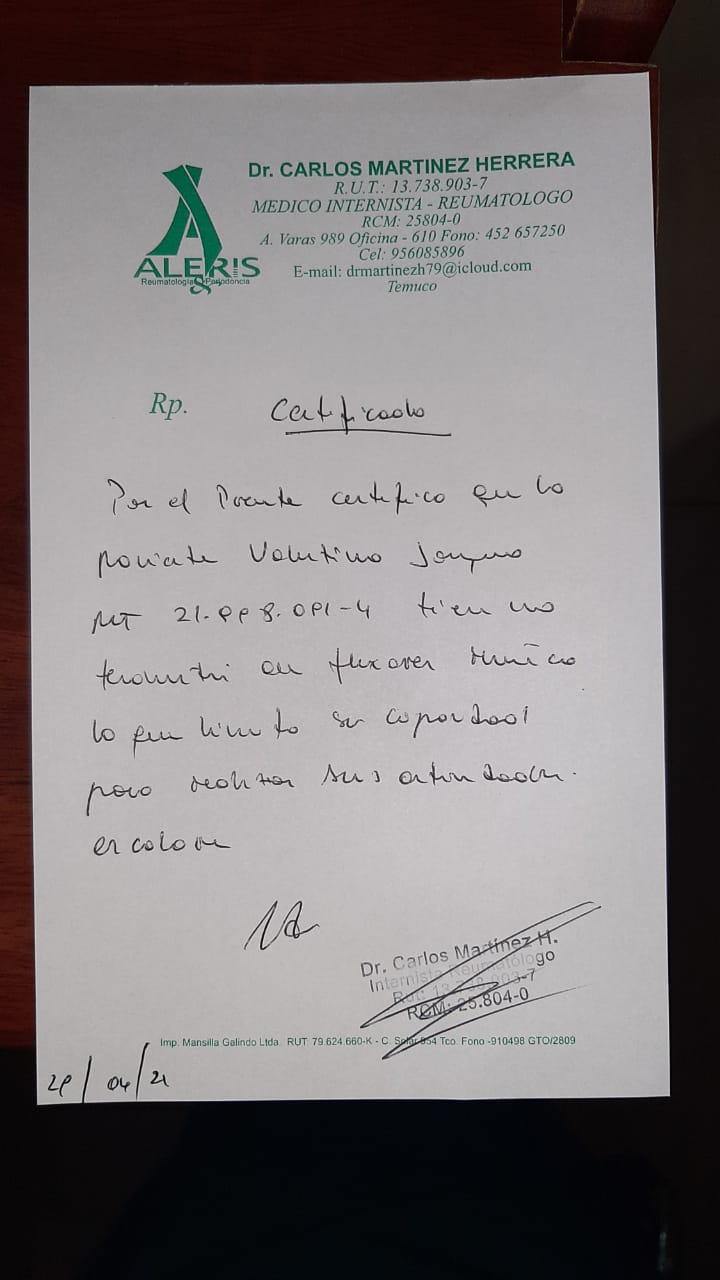 Dr. CARLOS MARTINEZ HERRERA
R.U.T.: 13.738.903-7
MEDICO INTERNISTA - REUMATOLOGO
RCM: 25804-0
A. Varas 989 Oficina - 610 Fono: 452 657250
Cel: 956085896
E-mail: drmartinezh79@icloud.com
Temuco
ALERIS
Reumatología & Periodoncia
Rp. Certificado
Por el Presente certifico que la
paciente Valentina
tiene una
en flexores
lo que limita su capacidad
para realizar sus actividades
escolares
Dr. Carlos Martínez H.
Internista Reumatólogo
Rut: 13.738.903-7
RCM: 25.804-0
Imp. Mansilla Galindo Ltda. RUT 79.624.660-K - C. Solar 954 Tco. Fono -910498 GTO/2809
/ 04 / 21